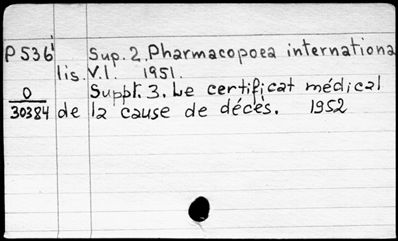 P 536 Sup. 2. Pharmacopoea internationa
lis. V.I. 1951.
O Suppt. 3. Le certificat médical
30384 de la cause de décès. 1952